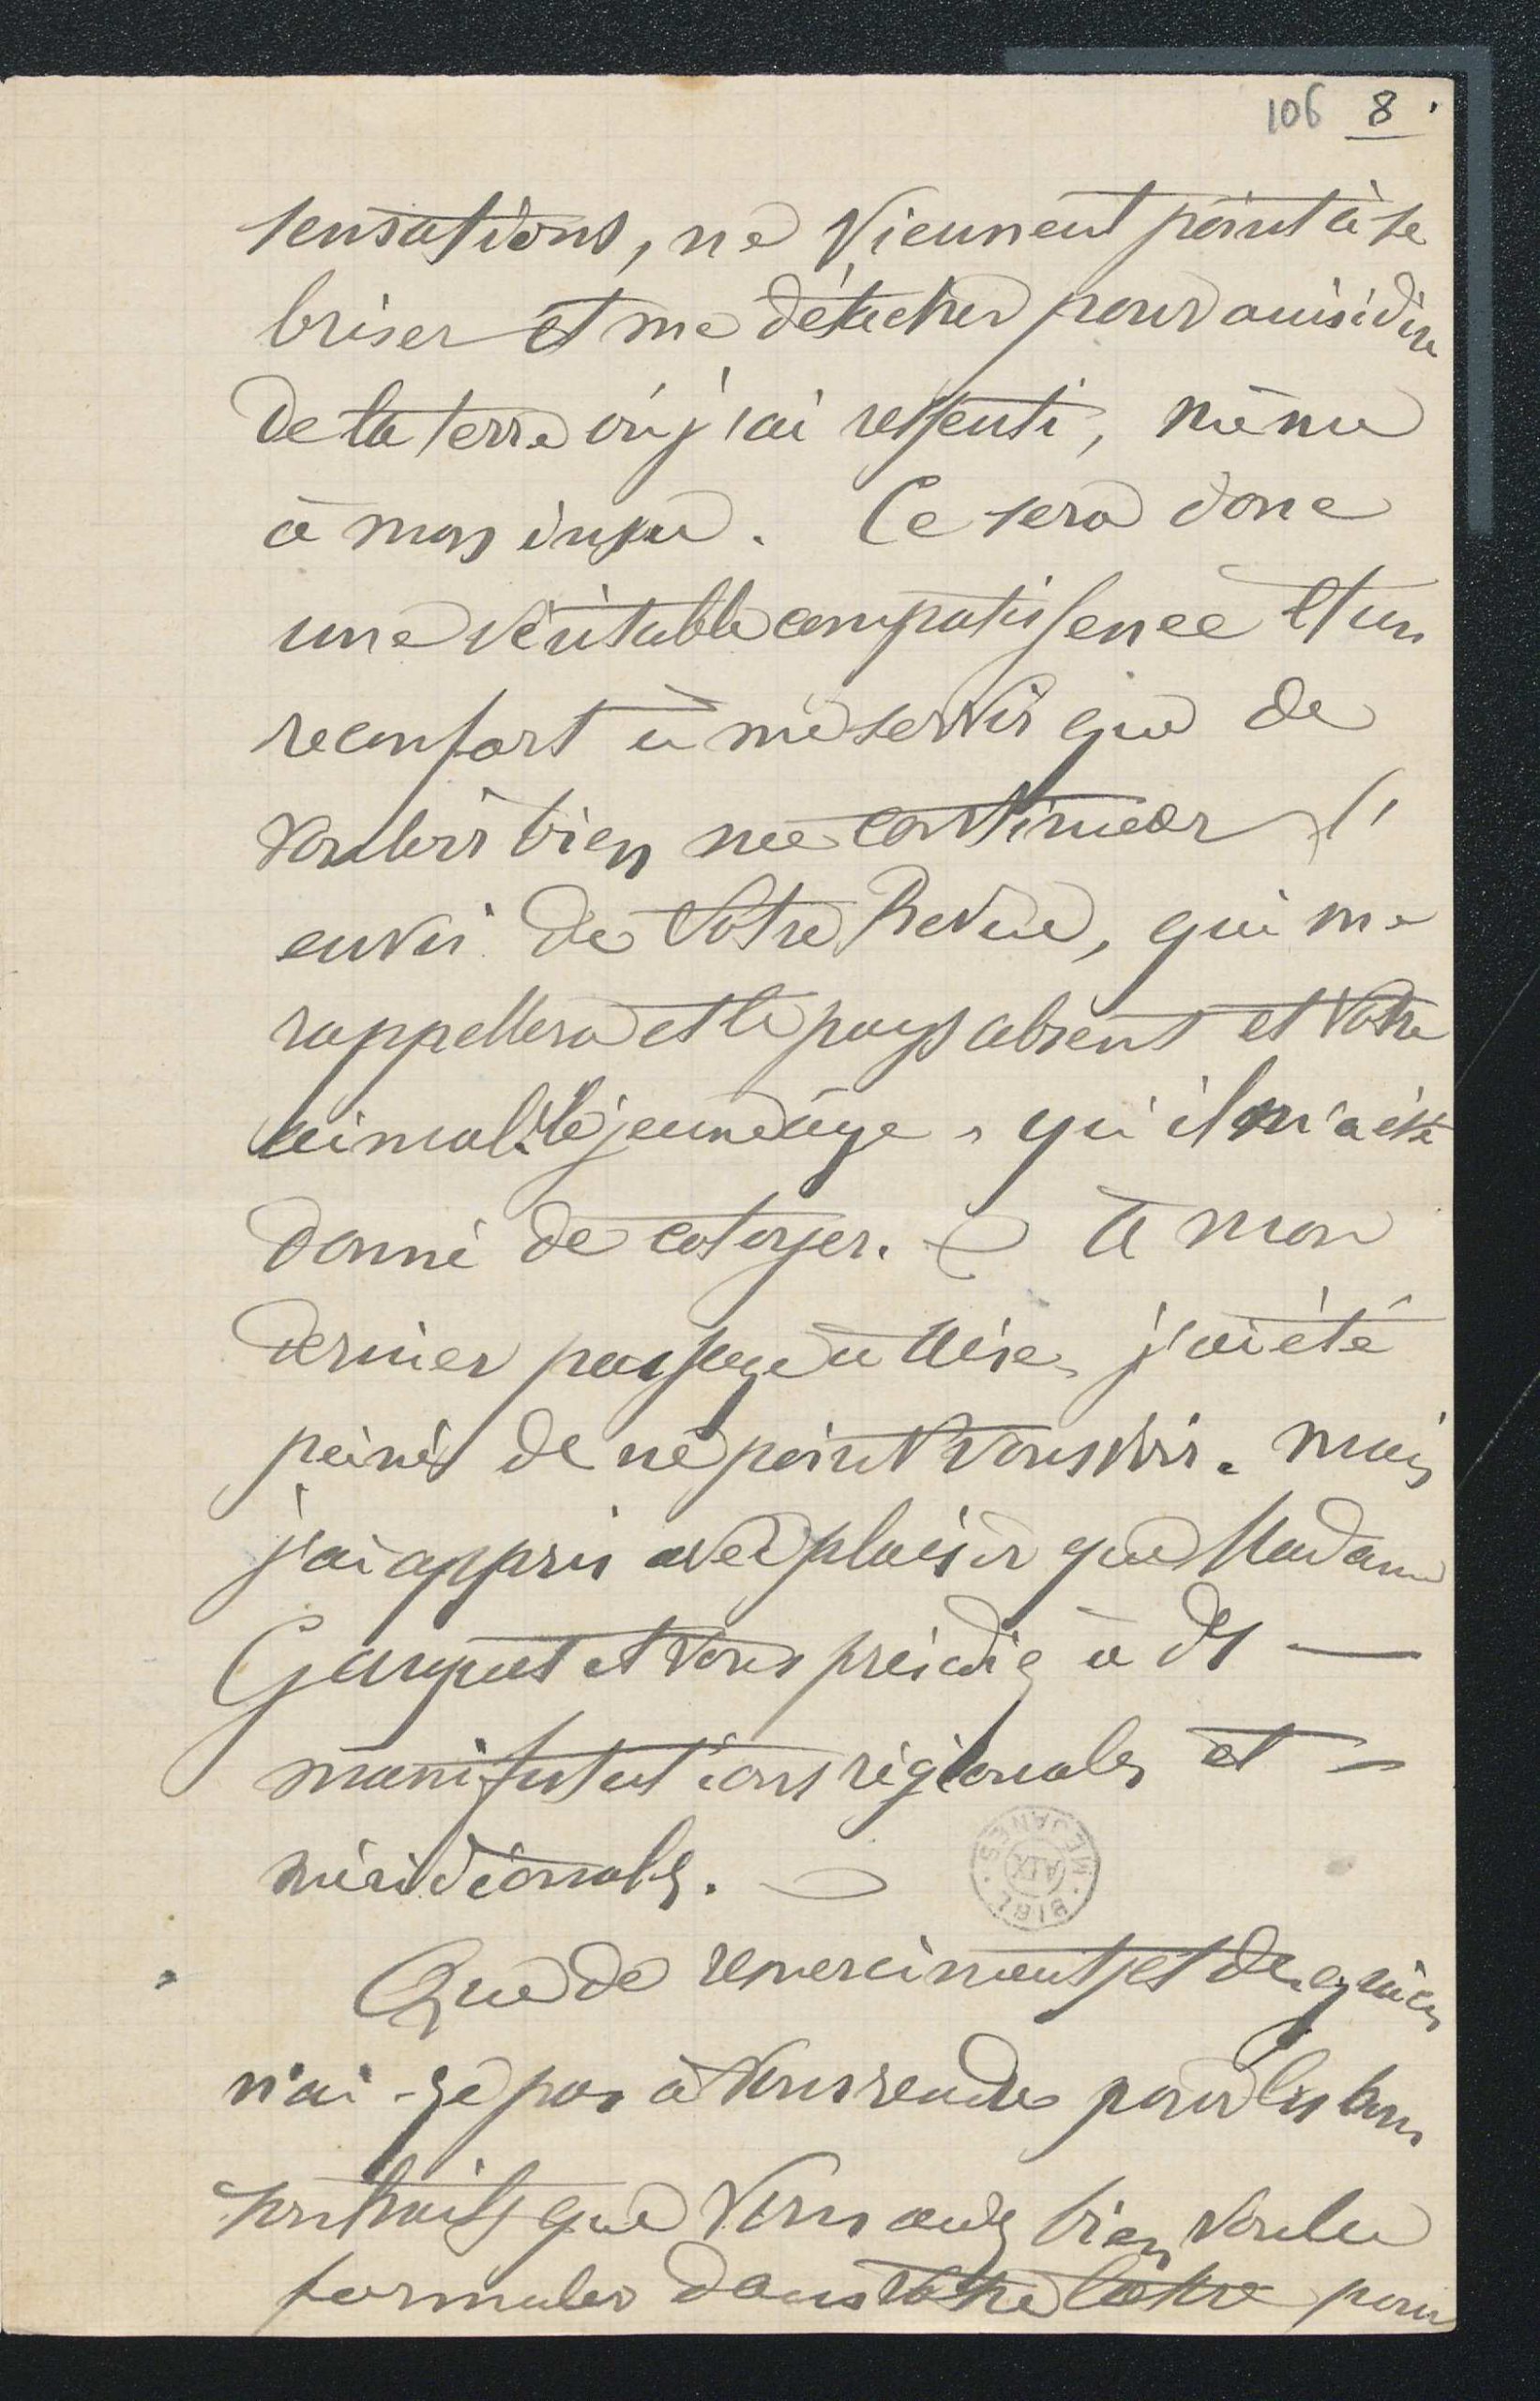 106 8
sensations, ne viennent point à se
briser et me détacher pour ainsi dire
de la terre où j'ai ressenti, même
à mon insu. Ce sera donc
une véritable compatissence et un
reconfort à me servir que de
vouloir bien me continuer l'
envoi de Votre Revue, qui me
rappellera et le pays absent et Votre
aimable jeune âge, qu'il m'a été
donné de cotoyer. À mon
dernier passage à Aix, j'ai été
peiné de ne point vous voir. Mais
j'ai appris avec plaisir que Madame
et Vous présidiez à des —
manifestations régionales et -
méridionales.
BIBL. MEJANES AIX
Que de remerciments et de grâces
n'ai-je pas à Vous rendre pour les bons
souhaits que Vous avez bien voulu
formuler dans Votre lettre pour